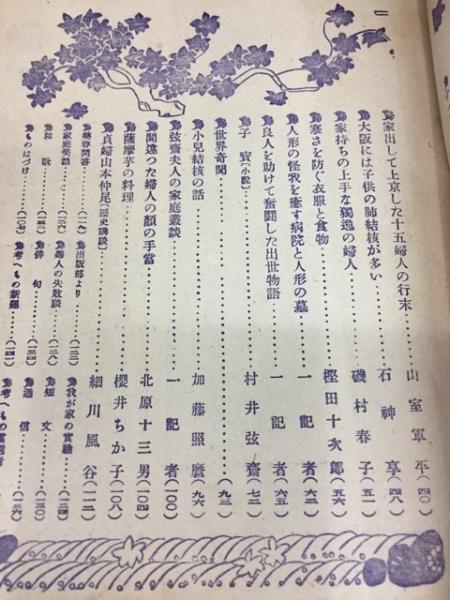 家出して上京した十五婦人の行末……山室軍平(四〇)
大阪には子供の肺結核が多い……石神亨(四八)
家持ちの上手な獨逸の婦人……磯村春子(五一)
寒さを防ぐ衣服と食物……樫田十次郎(五六)
人形の怪我を癒す病院と人形の墓……一記者(六三)
良人を助けて奮闘した出世物語……一記者(六五)
子寶(小説)……村井弦齋(七二)
世界奇聞……(九二)
小兒結核の話……加藤照麿(九六)
弦齋夫人の家庭叢談……一記者(一〇〇)
間違つた婦人の顏の手當……北原十三男(一〇四)
薩摩芋の料理……櫻井ちか子(一〇八)
貞婦山本仲尾(歴史講談)……細川風谷(一一二)
美容問答……
出版部より……
我が家の實驗……
家庭笑話……
婦人の失敗談……
短文……
和歌……
俳句……
通信……
ものはづけ……
考へもの新題……
考へもの